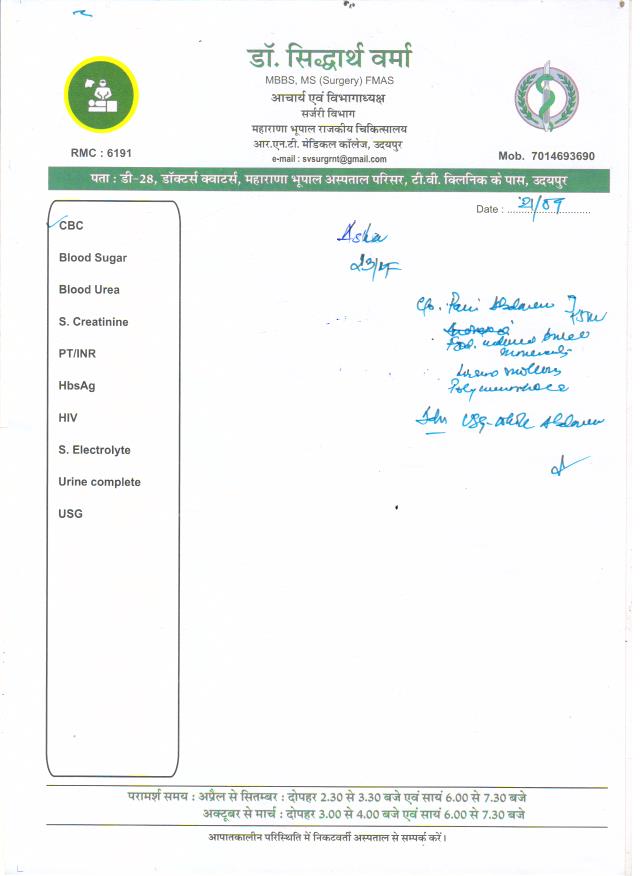 डॉ. सिद्धार्थ वर्मा
MBBS, MS (Surgery) FMAS
आचार्य एवं विभागाध्यक्ष
सर्जरी विभाग
महाराणा भूपाल राजकीय चिकित्सालय
आर.एन.टी. मेडिकल कॉलेज, उदयपुर
e-mail : svsurgrnt@gmail.com
RMC : 6191
Mob. 7014693690
पता : डी-28, डॉक्टर्स क्वाटर्स, महाराणा भूपाल अस्पताल परिसर, टी.वी. क्लिनिक के पास, उदयपुर
Date : 21/09
CBC
Blood Sugar
Blood Urea
S. Creatinine
PT/INR
HbsAg
HIV
S. Electrolyte
Urine complete
USG
Asha
23/F
c/o. Pain Abdomen
Polymenorrhoea
Adv USG- whole Abdomen
परामर्श समय : अप्रैल से सितम्बर : दोपहर 2.30 से 3.30 बजे एवं सायं 6.00 से 7.30 बजे
अक्टूबर से मार्च : दोपहर 3.00 से 4.00 बजे एवं सायं 6.00 से 7.30 बजे
आपातकालीन परिस्थिति में निकटवर्ती अस्पताल से सम्पर्क करें।